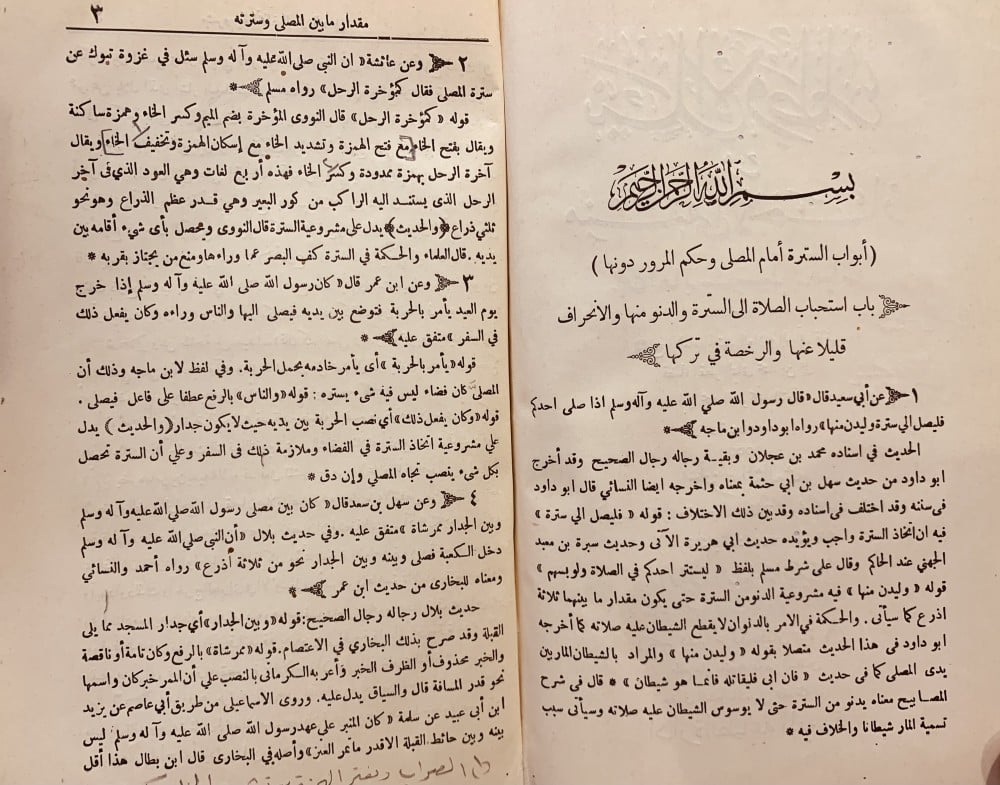 بسم الله الرحمن الرحيم
( أبواب السترة أمام المصلى وحكم المرور دونها )
باب استحباب الصلاة الى السترة والدنو منها والانحراف
قليلا عنها والرخصة في تركها
١ عن أبي سعيد قال « قال رسول الله صلي الله عليه وآله وسلم اذا صلى احدكم
فليصل الي سترة وليدن منها » رواه ابو داود وابن ماجه *
الحديث في اسناده محمد بن عجلان وبقيـة رجاله رجال الصحيح وقد أخرج
ابو داود من حديث سهل بن ابي حثمة بمعناه واخرجه ايضا النسائي قال ابو داود
فى سننه وقد اختلف فى اسناده وقد بين ذلك الاختلاف : قوله « فليصل الي سترة »
فيه ان اتخاذ السترة واجب ويؤيده حديث ابي هريرة الآتى وحديث سبرة بن معبد
الجهني عند الحاكم وقال على شرط مسلم بلفظ « ليستتر احدكم في الصلاة ولو بسهم »
قوله « وليدن منها » فيه مشروعية الدنو من السترة حتى يكون مقدار ما بينهما ثلاثة
اذرع كما سيأتى . والحكمة في الامر بالدنو ان لا يقطع الشيطان عليه صلاته كما أخرجه
ابو داود فى هذا الحديث متصلا بقوله « وليدن منها » والمراد بالشيطان المار بين
يدى المصلى كما فى حديث « فان ابى فليقاتله فانما هو شيطان » * قال في شرح
المصابيح معناه يدنو من السترة حتى لا يوسوس الشيطان عليه صلاته وسيأتى سبب
تسمية المار شيطانا والخلاف فيه *
مقدار ما بين المصلى وسترته
٣
٢ وعن عائشة « ان النبى صلى الله عليه وآ له وسلم سئل في غزوة تبوك عن
سترة المصلى فقال كمؤخرة الرحل » رواه مسلم *
قوله « كمؤخرة الرحل » قال النووى المؤخرة بضم الميم وكسر الخاء وهمزة ساكنة
ويقال بفتح الخاء مع فتح الهمزة وتشديد الخاء مع إسكان الهمزة وتخفيف الخاء ويقال
آخرة الرحل بهمزة ممدودة وكسر الخاء فهذه أربع لغات وهي العود الذي فى آخر
الرحل الذى يستند اليه الراكب من كور البعير وهي قدر عظم الذراع وهو نحو
ثلثي ذراع ( والحديث ) يدل على مشروعية السترة قال النووى ويحصل بأى شيء أقامه بين
يديه . قال العلماء والحكمة في السترة كف البصر عما وراءها ومنع من يجتاز بقربه *
٣ وعن ابن عمر قال « كان رسول الله صلى الله عليه وآ له وسلم إذا خرج
يوم العيد يأمر بالحربة فتوضع بين يديه فيصلى اليها والناس وراءه وكان يفعل ذلك
في السفر » متفق عليه *
قوله « يأمر بالحربة » أى يأمر خادمه بحمل الحربة . وفي لفظ لابن ماجه وذلك أن
المصلى كان فضاء ليس فيه شىء يستره : قوله « والناس » بالرفع عطفا على فاعل فيصلى .
قوله « وكان يفعل ذلك » أى نصب الحربة بين يديه حيث لا يكون جدار ( والحديث ) يدل
علي مشروعية اتخاذ السترة في الفضاء وملازمة ذلك فى السفر وعلي أن السترة تحصل
بكل شىء ينصب تجاه المصلي وإن دق *
٤ وعن سهل بن سعد قال « كان بين مصلى رسول الله صلى الله عليه وآ له وسلم
وبين الجدار ممر شاة » متفق عليه . وفي حديث بلال « أن النبي صلى الله عليه وآ له وسلم
دخل الكعبة فصلى وبينه وبين الجدار نحو من ثلاثة أذرع » رواه أحمد والنسائي
ومعناه للبخارى من حديث ابن عمر *
حديث بلال رجاله رجال الصحيح : قوله « وبين الجدار » أي جدار المسجد مما يلى
القبلة وقد صرح بذلك البخاري في الاعتصام . قوله « ممر شاة » بالرفع وكان تامة أو ناقصة
والخبر محذوف أو الظرف الخبر وأعربه الكرمانى بالنصب علي أن الممر خبر كان واسمها
نحو قدر المسافة قال والسياق يدل عليه . وروى الاسماعيلى من طريق أبي عاصم عن يزيد
ابن أبى عبيد عن سلمة « كان المنبر على عهد رسول الله صلى الله عليه وآ له وسلم ليس
بينه وبين حائط القبلة الاقدر ما تمر العنز » وأصله في البخارى قال ابن بطال هذا أقل